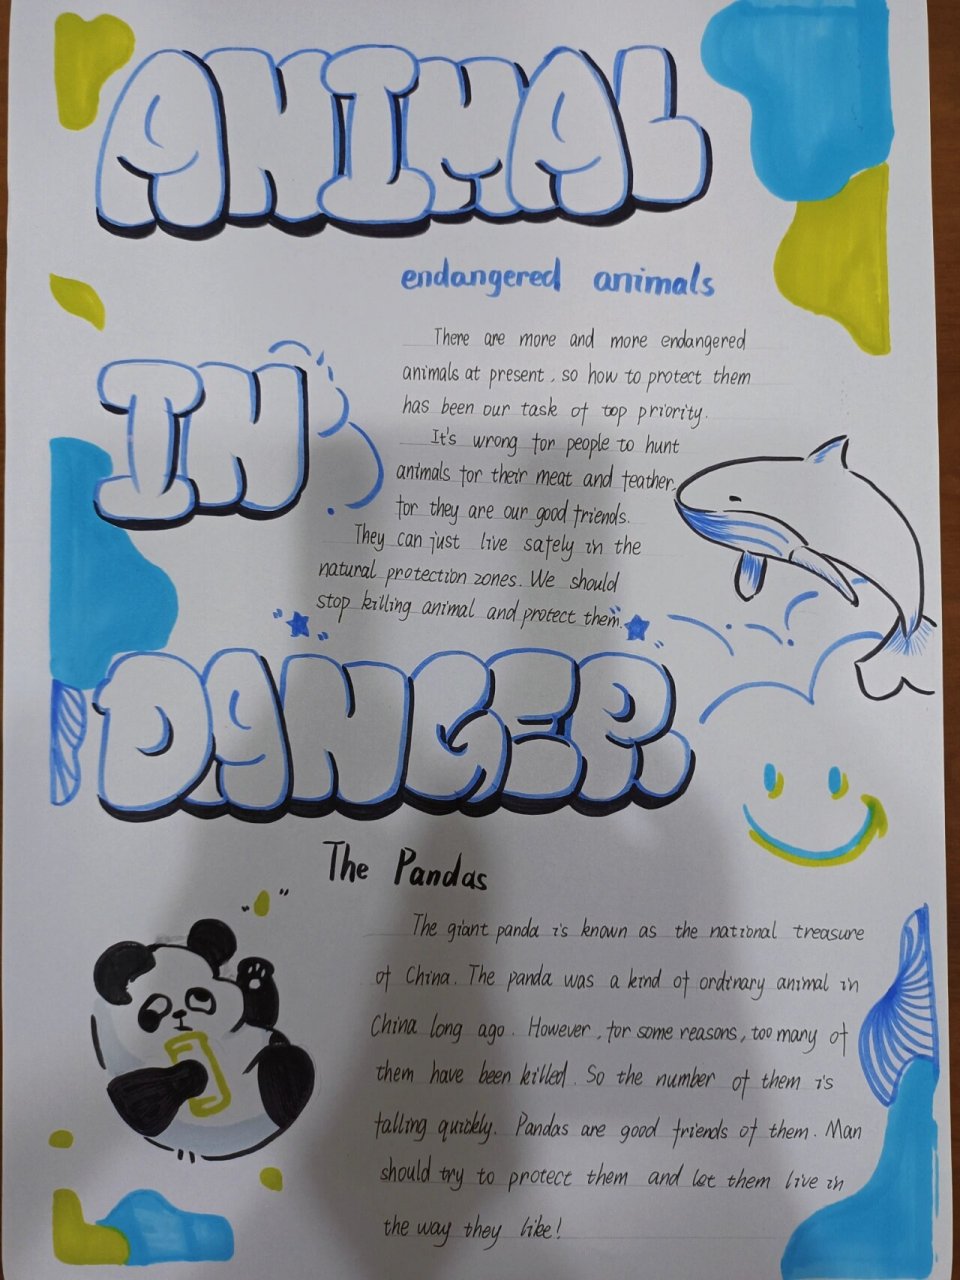 ANIMAL
endangered animals
There are more and more endangered
animals at present, so how to protect them
has been our task of top priority.
It's wrong for people to hunt
animals for their meat and feather,
for they are our good friends.
IN
They can just live safely in the
natural protection zones. We should
stop killing animal and protect them.
DANGER
The Pandas
The giant panda is known as the national treasure
of China. The panda was a kind of ordinary animal in
China long ago. However, for some reasons, too many of
them have been killed. So the number of them is
falling quickly. Pandas are good friends of them. Man
should try to protect them and let them live in
the way they like!